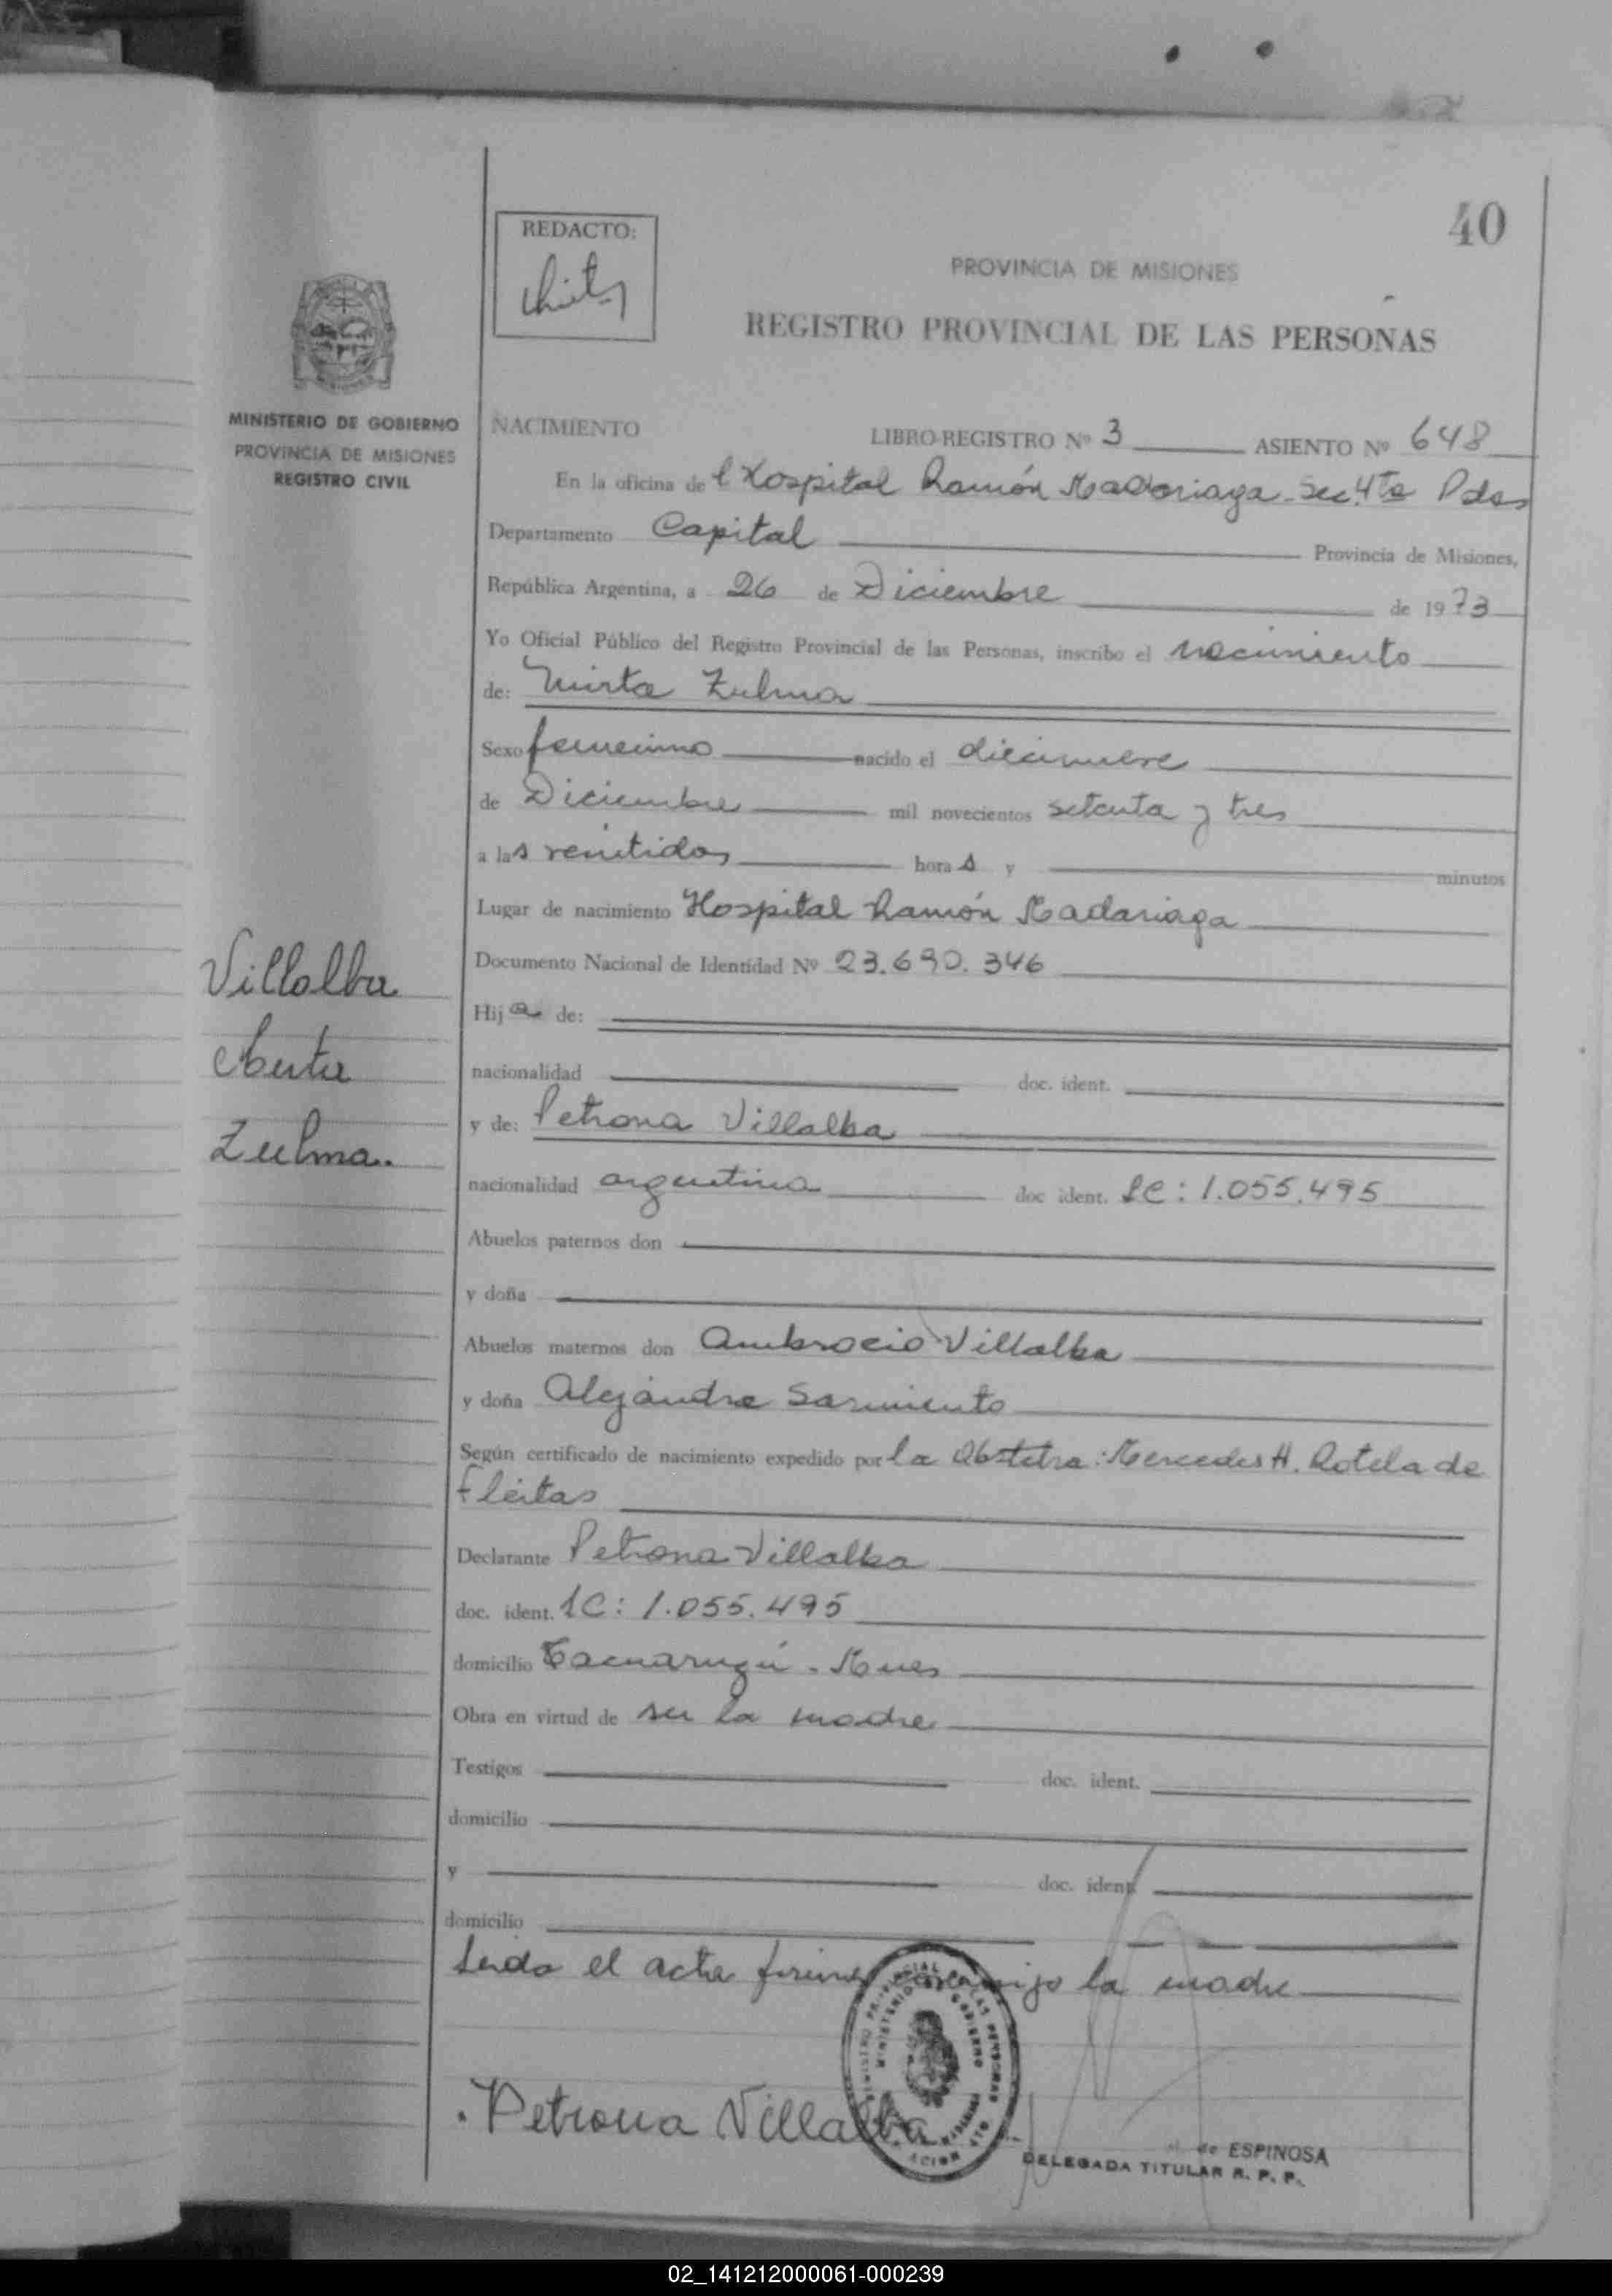 40
REDACTO:
PROVINCIA DE MISIONES
REGISTRO PROVINCIAL DE LAS PERSONAS
MINISTERIO DE GOBIERNO
PROVINCIA DE MISIONES
REGISTRO CIVIL
NACIMIENTO LIBRO-REGISTRO Nº 3 ASIENTO Nº 648
En la oficina del Hospital Ramón Madariaga - Sec. 4ta Pdas
Departamento Capital Provincia de Misiones,
República Argentina, a 26 de Diciembre de 1973
Yo Oficial Público del Registro Provincial de las Personas, inscribo el nacimiento
de: Mirta Zulma
Sexo femenino nacido el diecinueve
de Diciembre mil novecientos setenta y tres
a las veintidos horas y minutos
Lugar de nacimiento Hospital Ramón Madariaga
Documento Nacional de Identidad Nº 23.690.346
Villalba
Mirta
Zulma.
Hija de:
nacionalidad doc. ident.
y de: Petrona Villalba
nacionalidad argentina doc ident. LC: 1.055.495
Abuelos paternos don
y doña
Abuelos maternos don Ambrocio Villalba
y doña Alejandra Sarmiento
Según certificado de nacimiento expedido por la Obstetra: Mercedes H. Rotela de
Fleitas
Declarante Petrona Villalba
doc. ident. LC: 1.055.495
domicilio Tacuaruzú - Mnes
Obra en virtud de ser la madre
Testigos doc. ident.
domicilio
y doc. ident.
domicilio
Leida el acta firma conmigo la madre
Petrona Villalba
de ESPINOSA
DELEGADA TITULAR R. P. P.
02_141212000061-000239